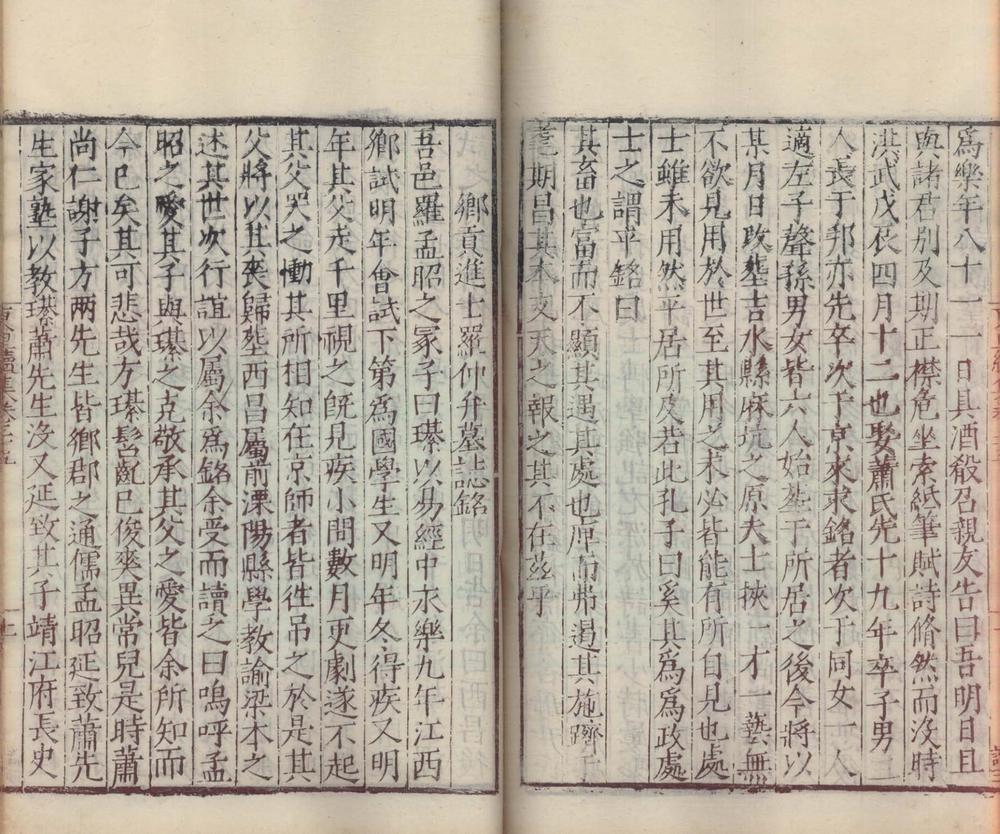 為樂年八十一一日具酒殽召親友告曰吾明日且
與諸君別及期正襟危坐索紙筆賦詩翛然而沒時
洪武戊辰四月十二也娶蕭氏先十九年卒子男三
人長于邦亦先卒次于京來求銘者次于同女一人
適左子聲孫男女皆六人始塟于所居之後今將以
某月日改塟吉水縣麻坑之原夫士挾一才一藝無
不欲見用於世至其用之未必皆能有所自見也處
士雖未用然平居所及若此孔子曰奚其為為政處
士之謂乎銘曰
其畜也富而不顯其遇其處也厚而弗遏其施躋于
耄期昌其本支天之報之其不在茲乎
鄉貢進士羅仲弁墓誌銘
吾邑羅孟昭之冢子曰璂以易經中永樂九年江西
鄉試明年會試下第為國學生又明年冬得疾又明
年其父走千里視之旣見疾小間數月更劇遂不起
其父哭之慟其所相知在京師者皆徃吊之於是其
父將以其喪歸塟西昌屬前溧陽縣學教諭梁本之
述其世次行誼以屬余為銘余受而讀之曰嗚呼孟
昭之愛其子與璂之克敬承其父之愛皆余所知而
今已矣其可悲哉方璂髫齓已俊爽異常兒是時蕭
尚仁謝子方兩先生皆鄉郡之通儒孟昭延致蕭先
生家塾以教璂蕭先生沒又延致其子靖江府長史